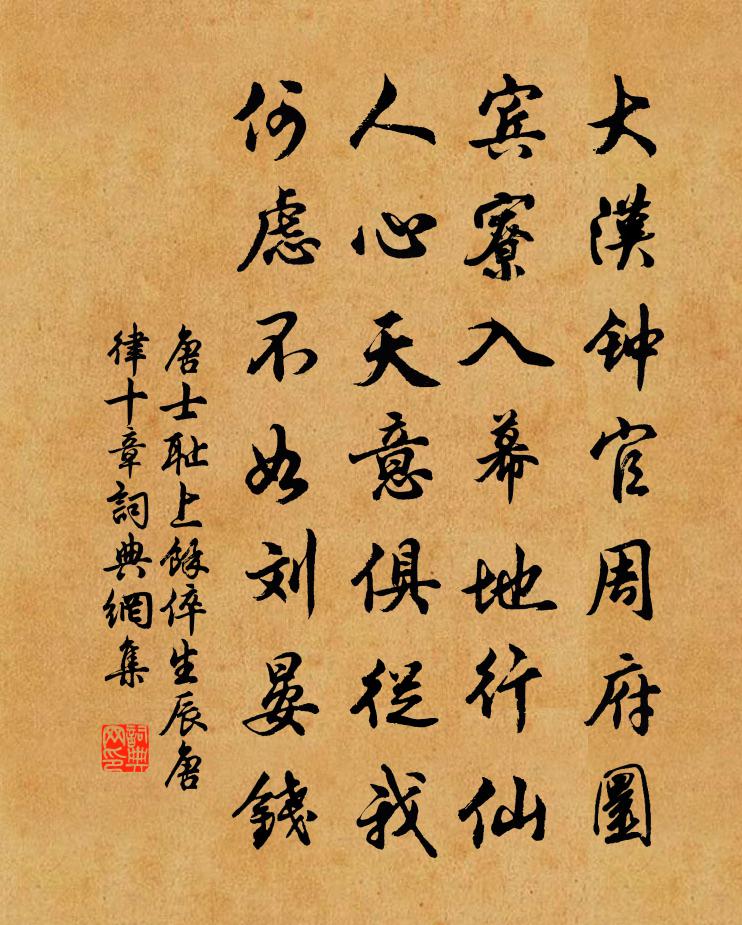 大漢钟官周府圜
宾寮入幕地行仙
人心天意俱從我
何慮不如刘晏錢
唐士耻上餘倅生辰唐
律十章詞典網集
詞典网印